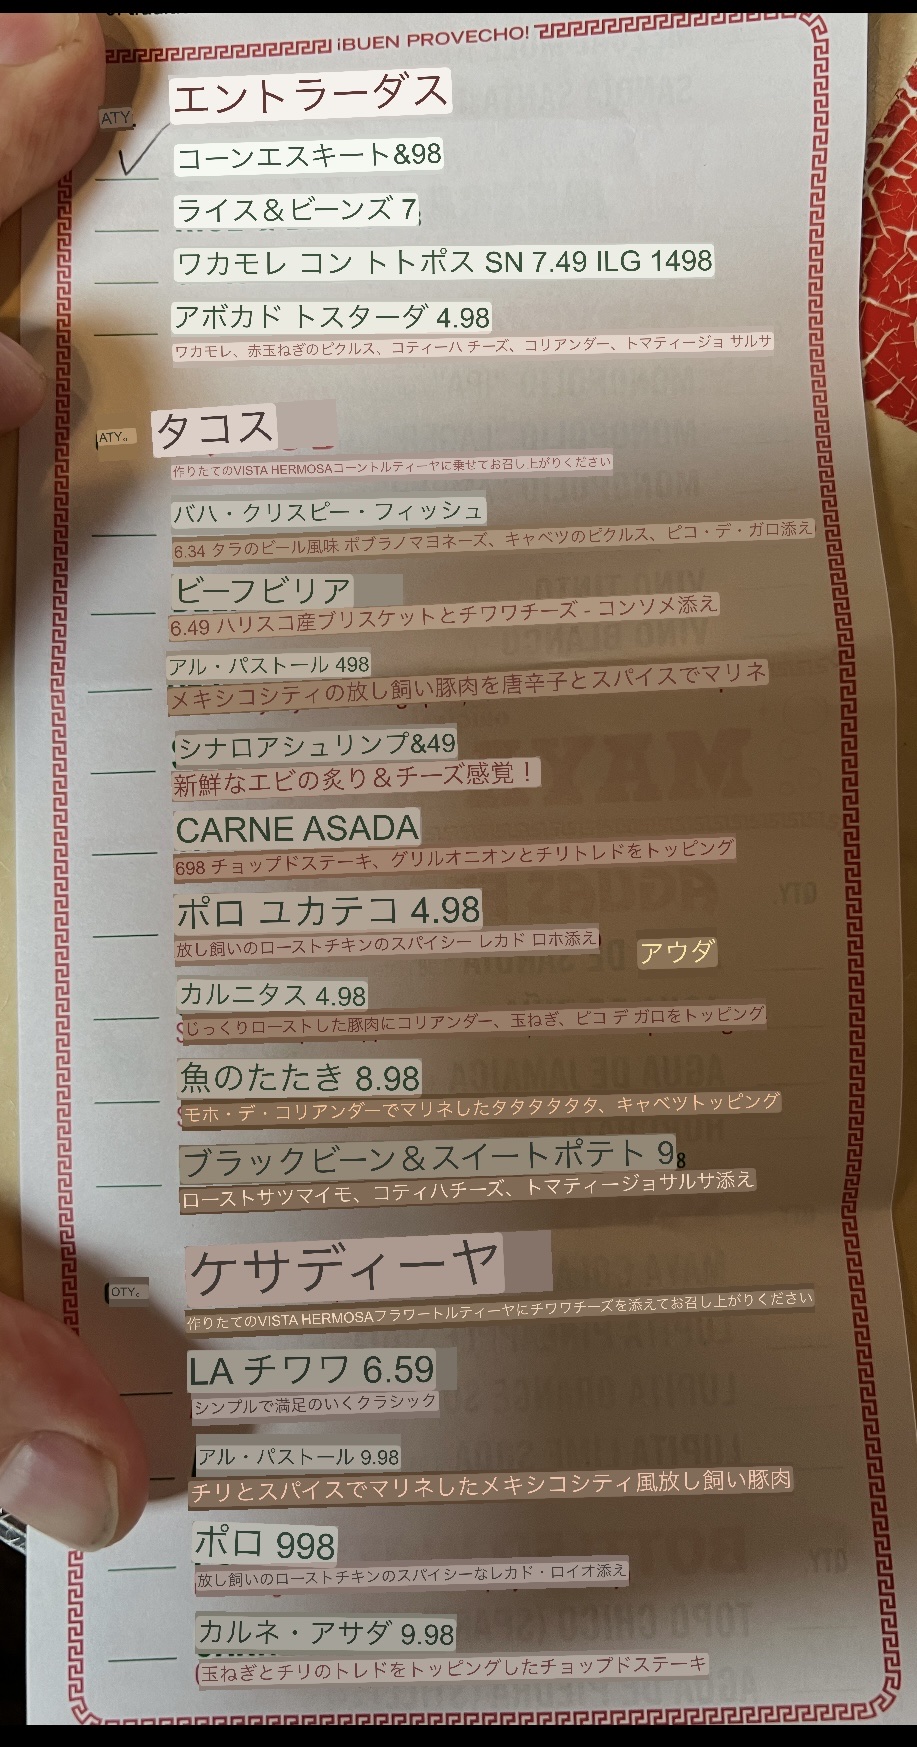 ¡BUEN PROVECHO!
エントラーダス
ATY.
コーンエスキート&98
ライス＆ビーンズ 7
ワカモレ コン トトポス SN 7.49 ILG 1498
アボカド トスターダ 4.98
ワカモレ、赤玉ねぎのピクルス、コティーハ チーズ、コリアンダー、トマティージョ サルサ
タコス
ATY。
作りたてのVISTA HERMOSAコーントルティーヤに乗せてお召し上がりください
バハ・クリスピー・フィッシュ
6.34 タラのビール風味 ポブラノマヨネーズ、キャベツのピクルス、ピコ・デ・ガロ添え
ビーフビリア
6.49 ハリスコ産ブリスケットとチワワチーズ - コンソメ添え
アル・パストール 498
メキシコシティの放し飼い豚肉を唐辛子とスパイスでマリネ
シナロアシュリンプ&49
新鮮なエビの炙り＆チーズ感覚！
CARNE ASADA
698 チョップドステーキ、グリルオニオンとチリトレドをトッピング
ポロ ユカテコ 4.98
放し飼いのローストチキンのスパイシー レカド ロホ添え
アウダ
カルニタス 4.98
じっくりローストした豚肉にコリアンダー、玉ねぎ、ピコ デ ガロをトッピング
魚のたたき 8.98
モホ・デ・コリアンダーでマリネしたタタタタタタ、キャベツトッピング
ブラックビーン＆スイートポテト 98
ローストサツマイモ、コティハチーズ、トマティージョサルサ添え
ケサディーヤ
OTY。
作りたてのVISTA HERMOSAフラワートルティーヤにチワワチーズを添えてお召し上がりください
LA チワワ 6.59
シンプルで満足のいくクラシック
アル・パストール 9.98
チリとスパイスでマリネしたメキシコシティ風放し飼い豚肉
ポロ 998
放し飼いのローストチキンのスパイシーなレカド・ロイオ添え
カルネ・アサダ 9.98
玉ねぎとチリのトレドをトッピングしたチョップドステーキ